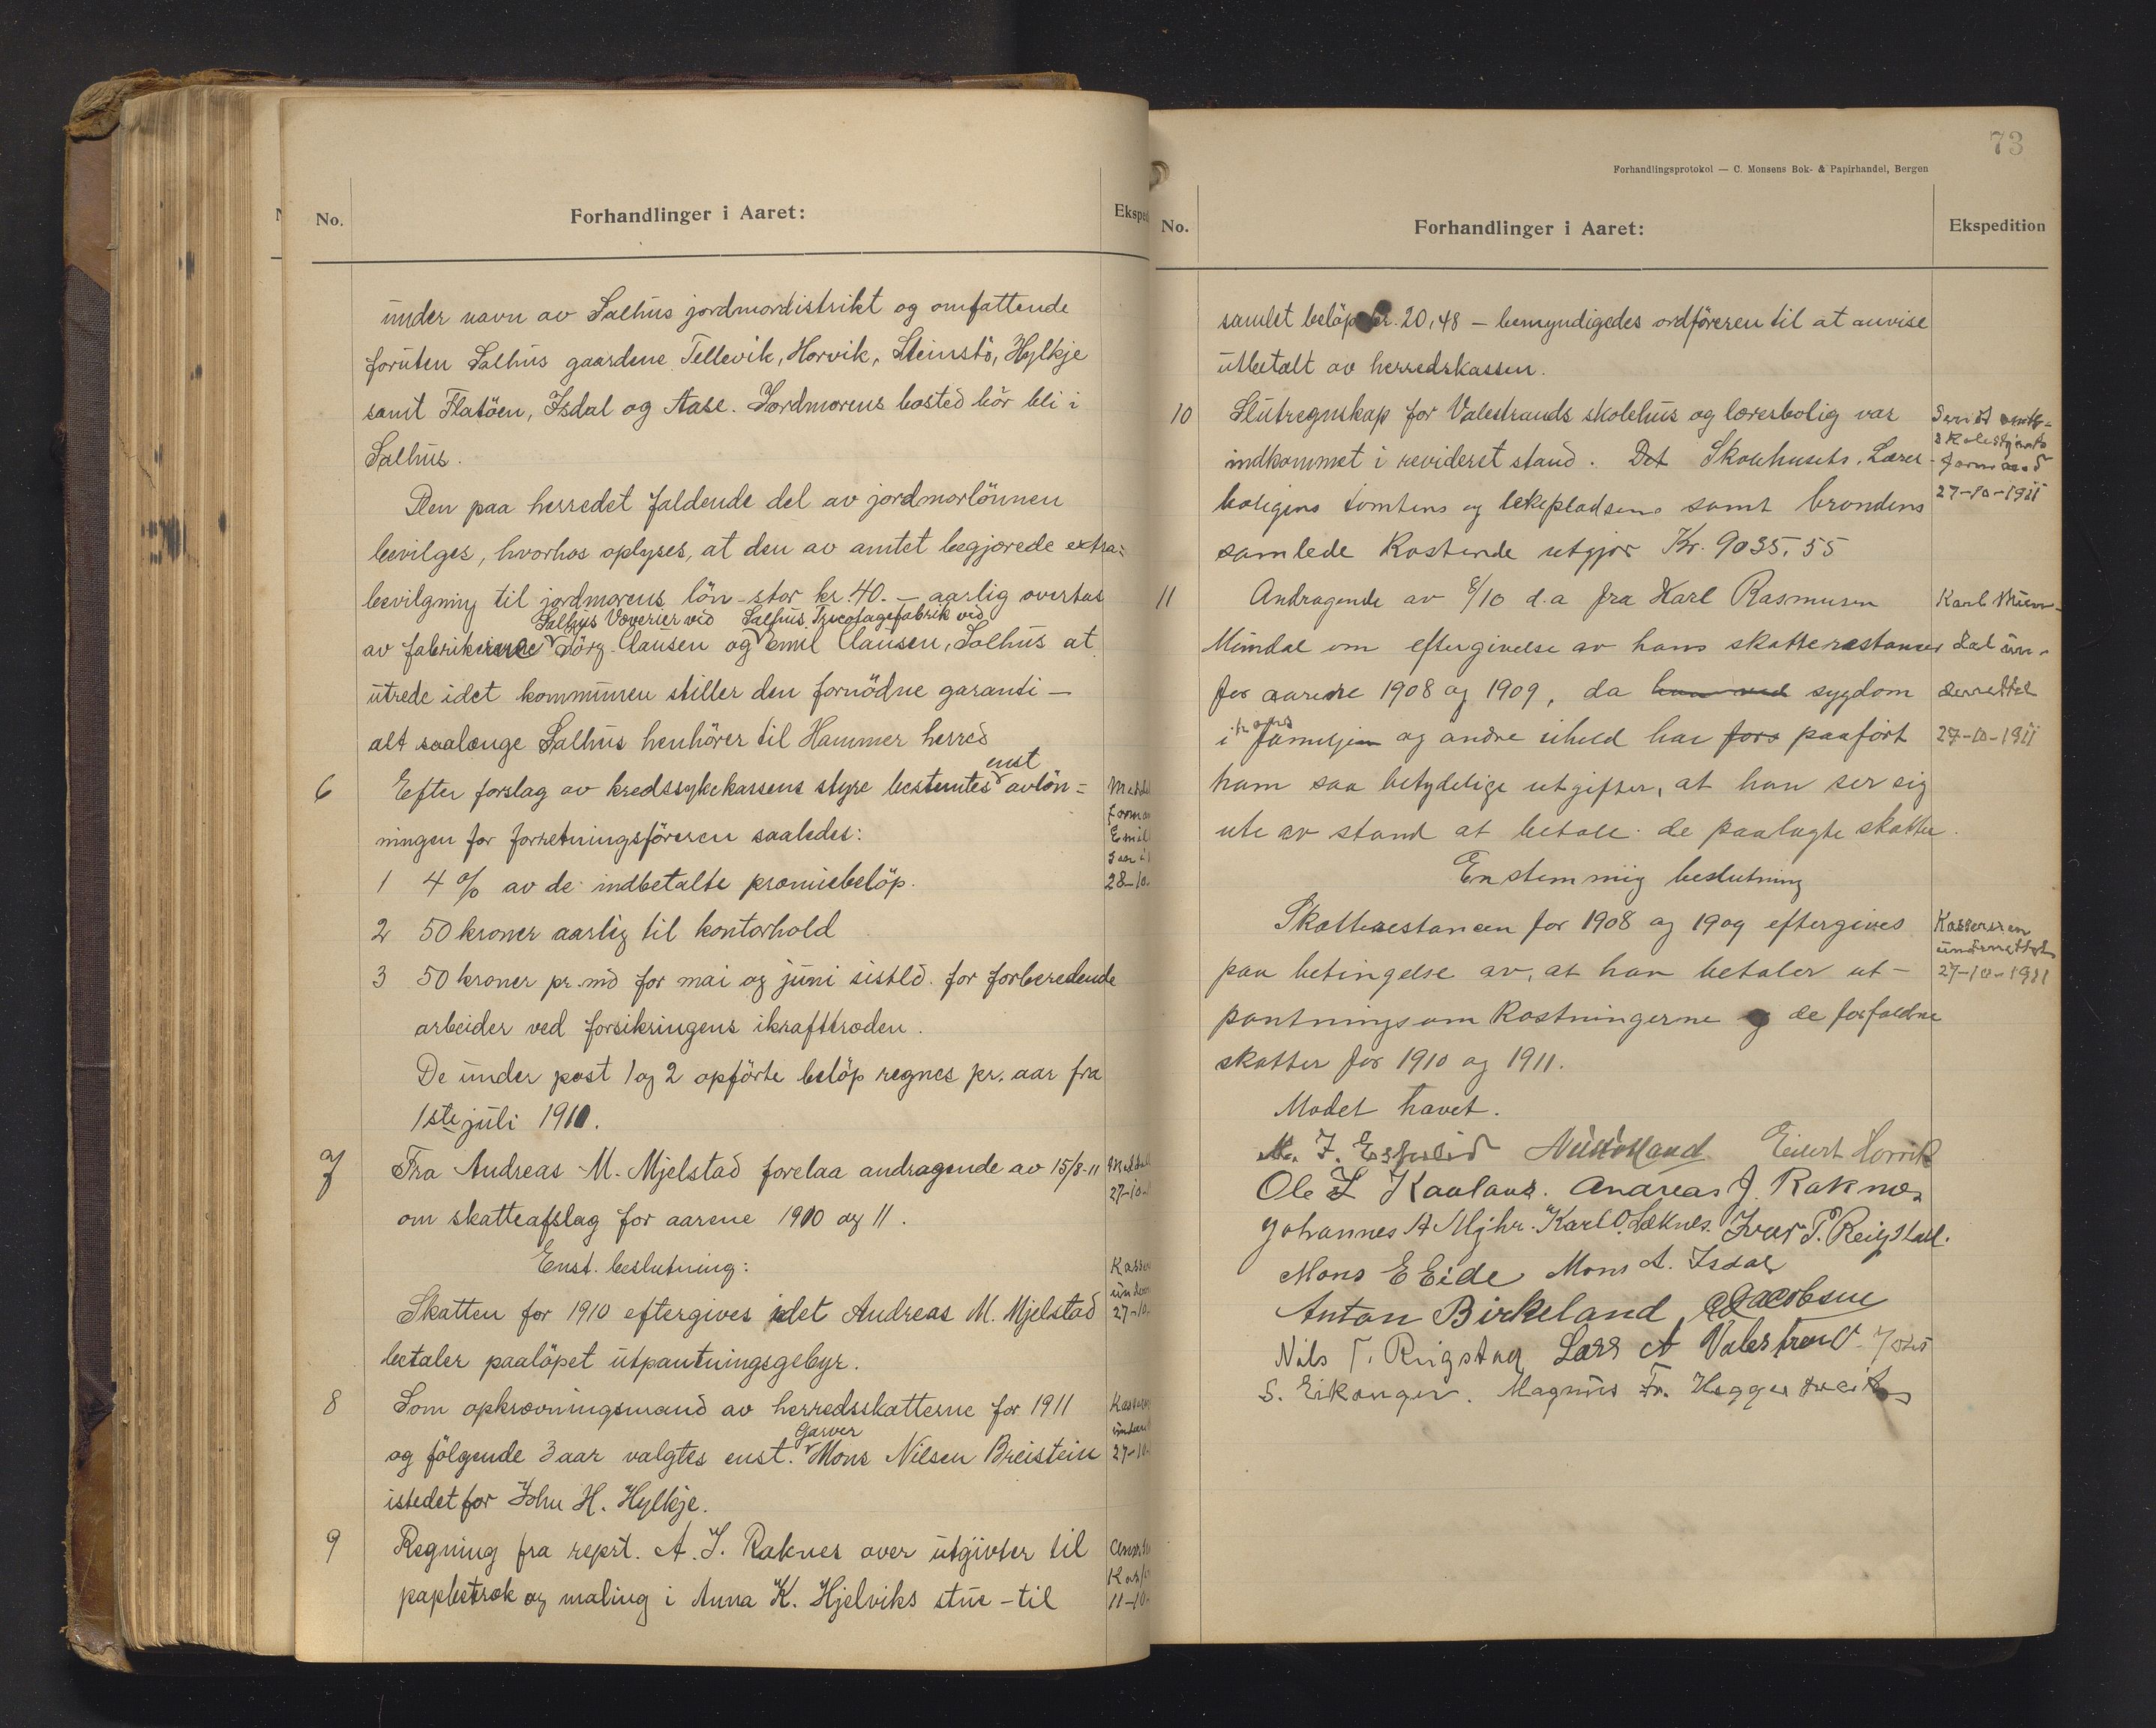 No.
Forhandlinger i Aaret:
under navn av Salhus jordmordistrikt og omfattende
foruten Salhus gaardene Tellevik, Horvik, Steinstö, Hylkje
samt Flatöen, Isdal og Aase. Jordmorens bosted bör bli i
Salhus.
Den paa herredet faldende del av jordmorlönnen
bevilges, hvorhos oplyses, at den av amtet begjærede extra=
bevilgning til jordmorens lön - stor kr. 40. — aarlig overtas
Salhus Væverier ved Salhus Tricotagefabrik ved
av fabrikerne Jörg. Clausen og emil Clausen, Salhus at
utrede idet kommunen stiller den fornödne garanti —
alt saalænge Salhus henhörer til Hammer herred
enst
6 Efter forslag av kredssykekassens styre bestemtes avlön=
ningen for forretningsföreren saaledes:
1 4 % av de indbetalte præmiebelöp.
2 50 kroner aarlig til kontorhold
3 50 kroner pr. md for mai og juni sistld. for forberedende
arbeider ved forsikringens ikrafttræden.
De under post 1 og 2 opförte belöp regnes pr. aar fra
1ste juli 1911.
7 Fra Andreas M. Mjelstad forelaa andragende av 15/8-11
27-10-
om skatteafslag for aarene 1910 og 11.
Enst. beslutning:
Skatten for 1910 eftergives idet Andreas M. Mjelstad
27-10-
betaler paalöpet utpantningsgebyr.
8 Som opkrævningsmand av herredsskatterne for 1911
Garver
og fölgende 3 aar valgtes enst. Mons Nilsen Breistein
27-10-
istedet for John H. Hylkje.
9 Regning fra reprt. A. J. Raknes over utgivter til
papbetræk og maling i Anna K. Hjelviks stue - til
11-10-
73
Forhandlingsprotokol — C. Monsens Bok- & Papirhandel, Bergen
No.
Forhandlinger i Aaret:
Ekspedition
samlet belöp kr. 20,48 — bemyndigedes ordföreren til at anvise
utbetalt av herredskassen.
10 Slutregnskap for Valestrands skolehus og lærerbolig var
indkommet i revideret stand. Det Skolehusets, Lærer-
boligens tomtens og lekepladsens samt brøndens
samlede Kostende utgjør Kr. 9035,55
27-10-1911
11 Andragende av 8/10 d.a fra Karl Rasmusen
Mundal om eftergivelse av hans skatterestancer
for aarene 1908 og 1909, da han ved sygdom
i hans familjen og andre uheld har fors paaført
ham saa betydelige utgifter, at han ser sig
ute av stand at betale de paalagte skatter.
Karl Mun-
dal un-
derrettet
27-10-1911
Enstemmig beslutning
Skatterestancen for 1908 og 1909 eftergives
paa betingelse av, at han betaler ut-
pantningsomkostningerne og de forfaldne
skatter for 1910 og 1911.
Kassereren
underrettet
27-10-1911
Mødet hævet.
Eilert Horvik
Andreas J. Raknes
Johannes A Mjhr. Karl O. Leknes. Ivar T. Reigstad.
Mons E Eide Mons A. Isdal
Anton Birkeland Jacobsen
Nils T. Reigstad Lars A Valestrand
S. Eikanger. Magnus Fr.